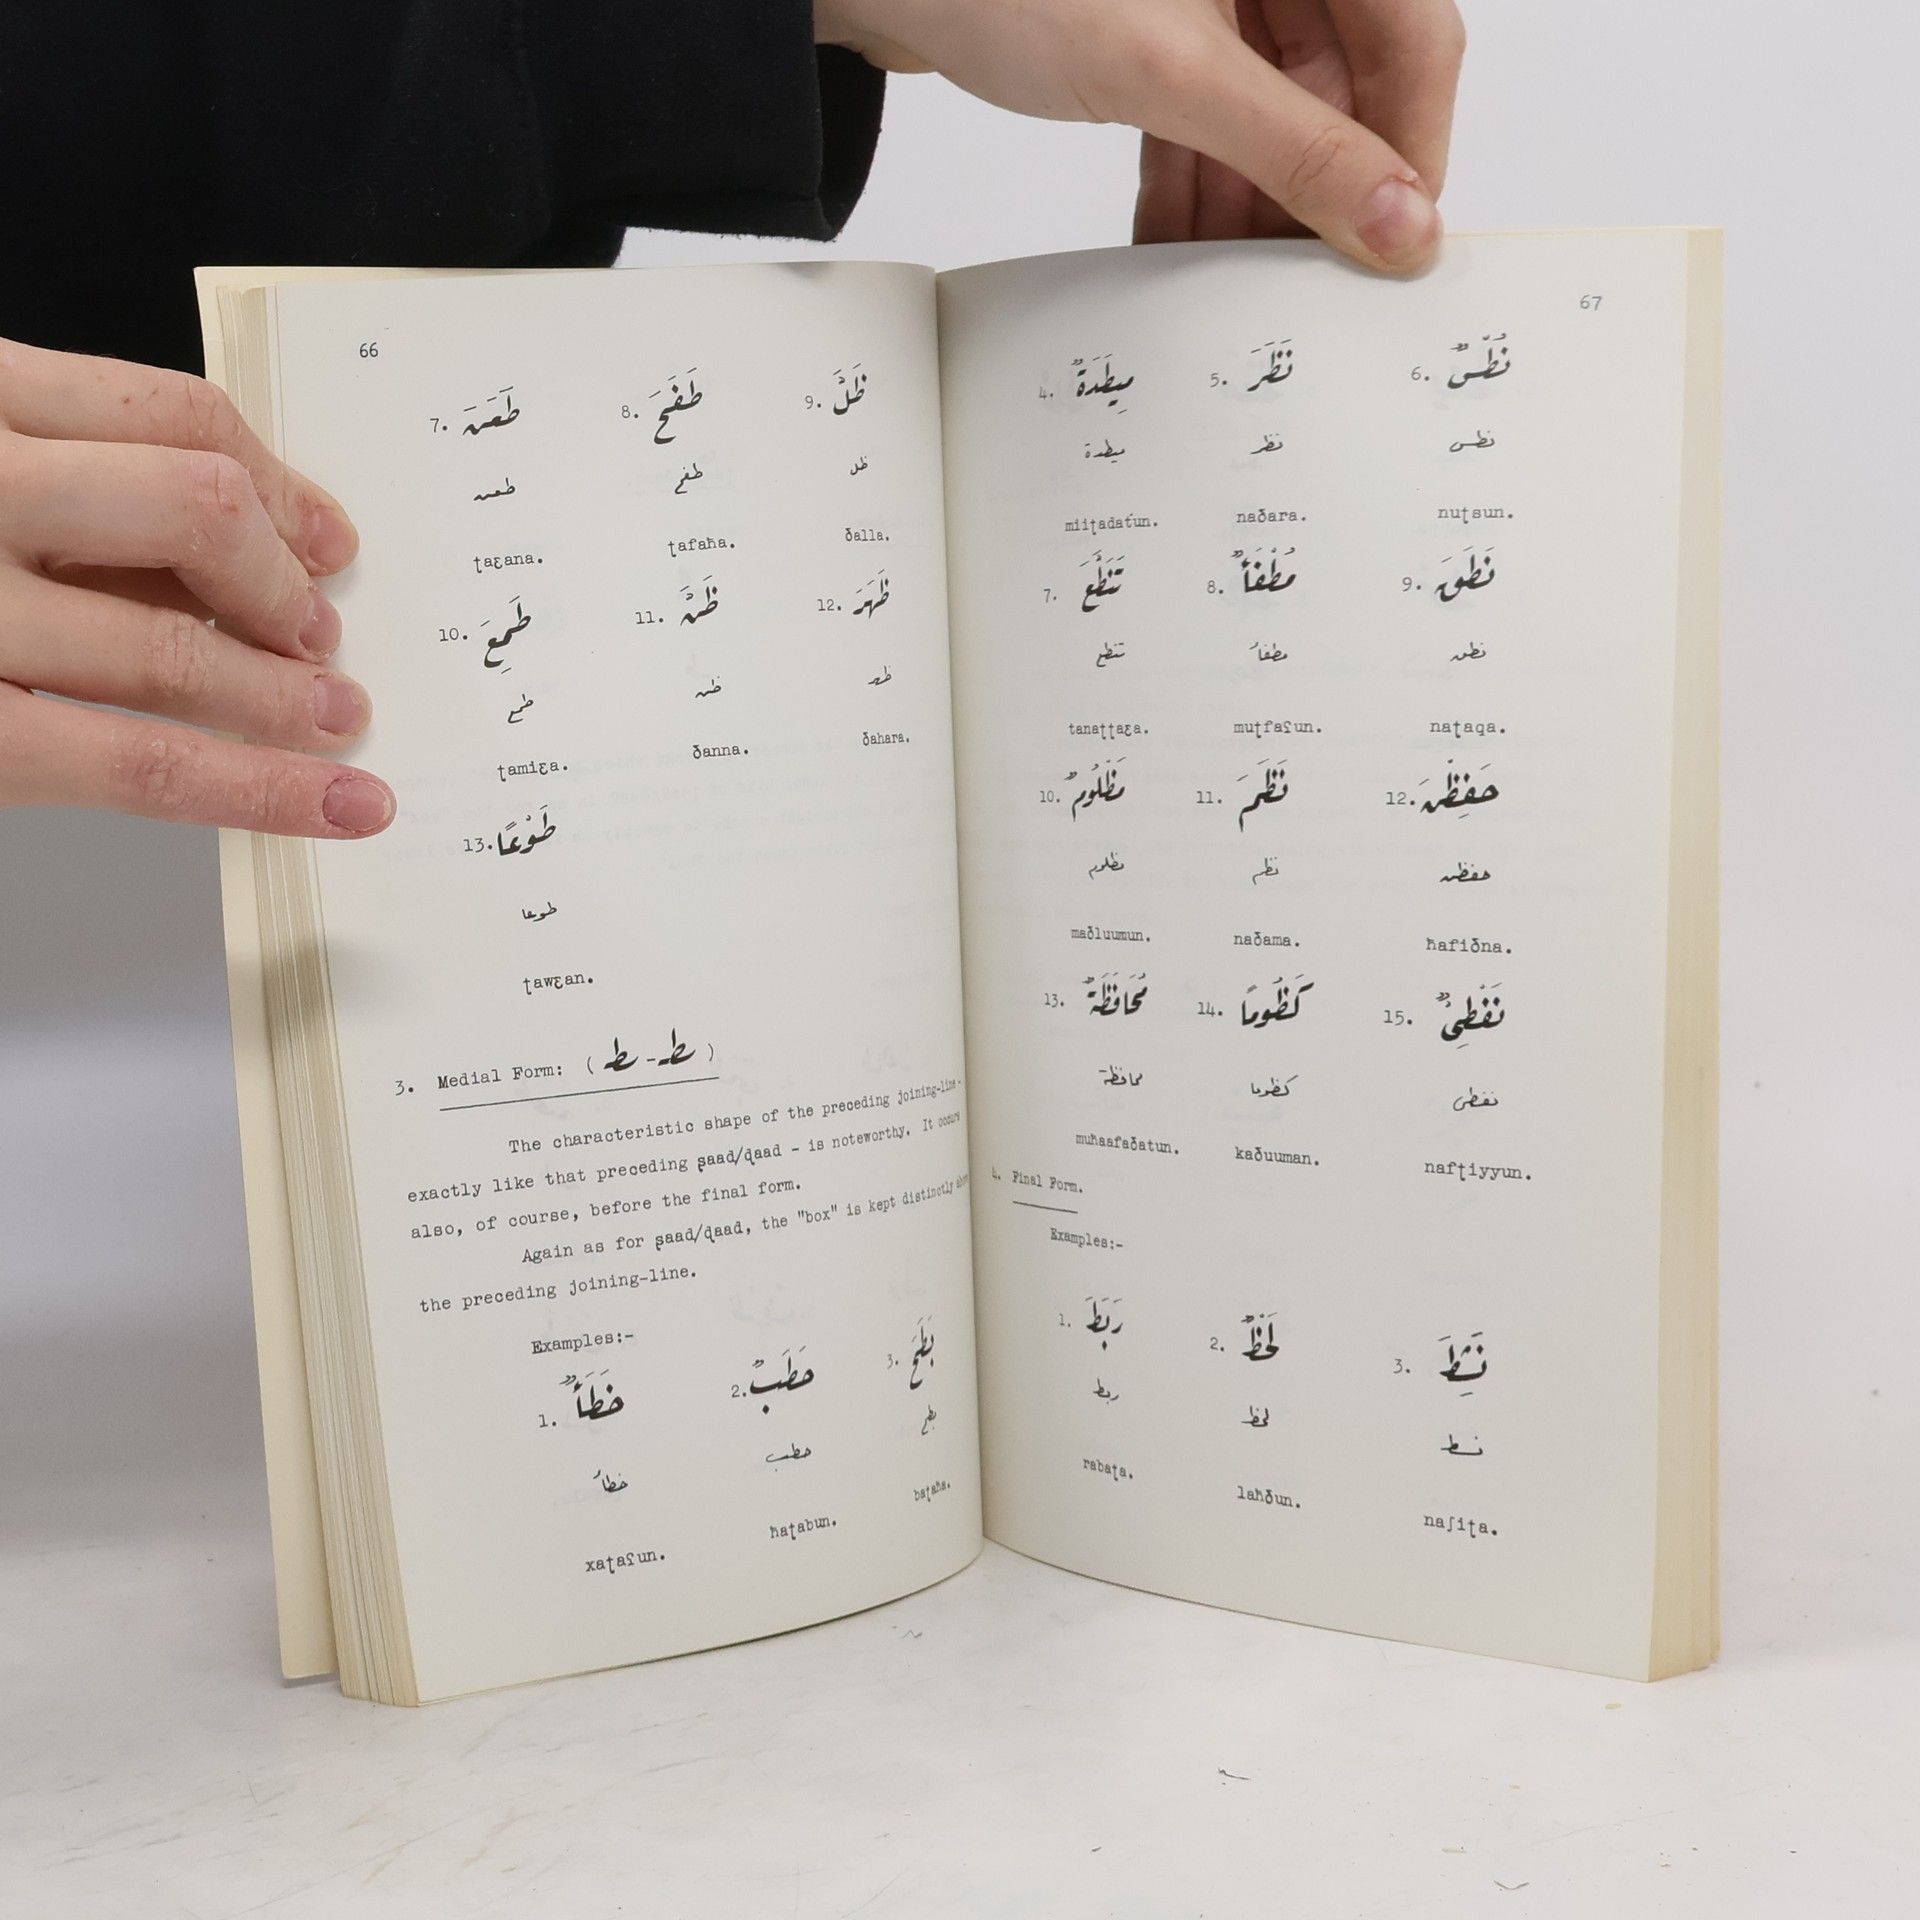 66
7. طَعَنَ 8. طَفَحَ 9. ظَلَّ
طعن طفح ظل
ţaɛana. ţafaħa. ðalla.
10. طَمِعَ 11. ظَنَّ 12. ظَهَرَ
طمع ظن ظهر
ţamiɛa. ðanna. ðahara.
13. طَوْعًا
طوعا
ţawɛan.
3. Medial Form: (ط - ط)
The characteristic shape of the preceding joining-line -
exactly like that preceding şaad/ɖaad - is noteworthy. It occurs
also, of course, before the final form.
Again as for şaad/ɖaad, the "box" is kept distinctly above
the preceding joining-line.
Examples:-
1. خَطَأٌ 2. حَطَبٌ 3. بَطَحَ
خطأ حطب بطح
xaţaʕun. ħaţabun. baţaħa.
67
4. مِيطَدَةٌ 5. نَظَرَ 6. نُطْسٌ
ميطدة نظر نطس
miiţadatun. naðara. nuţsun.
7. تَنَطَّعَ 8. مُطْفَأٌ 9. نَطَقَ
تنطع مطفأ نطق
tanaţţaɛa. muţfaʕun. naţaqa.
10. مَظْلُومٌ 11. نَظَمَ 12. حَفِظْنَ
مظلوم نظم حفظن
maðluumun. naðama. ħafiðna.
13. مُحَافَظَةٌ 14. كَظُومًا 15. نَفْطِيٌّ
محافظة كظوما نفطى
muħaafaðatun. kaðuuman. nafţiyyun.
4. Final Form.
Examples:-
1. رَبَطَ 2. لَحْظٌ 3. نَشِطَ
ربط لحظ نشط
rabaţa. laħðun. naʃiţa.